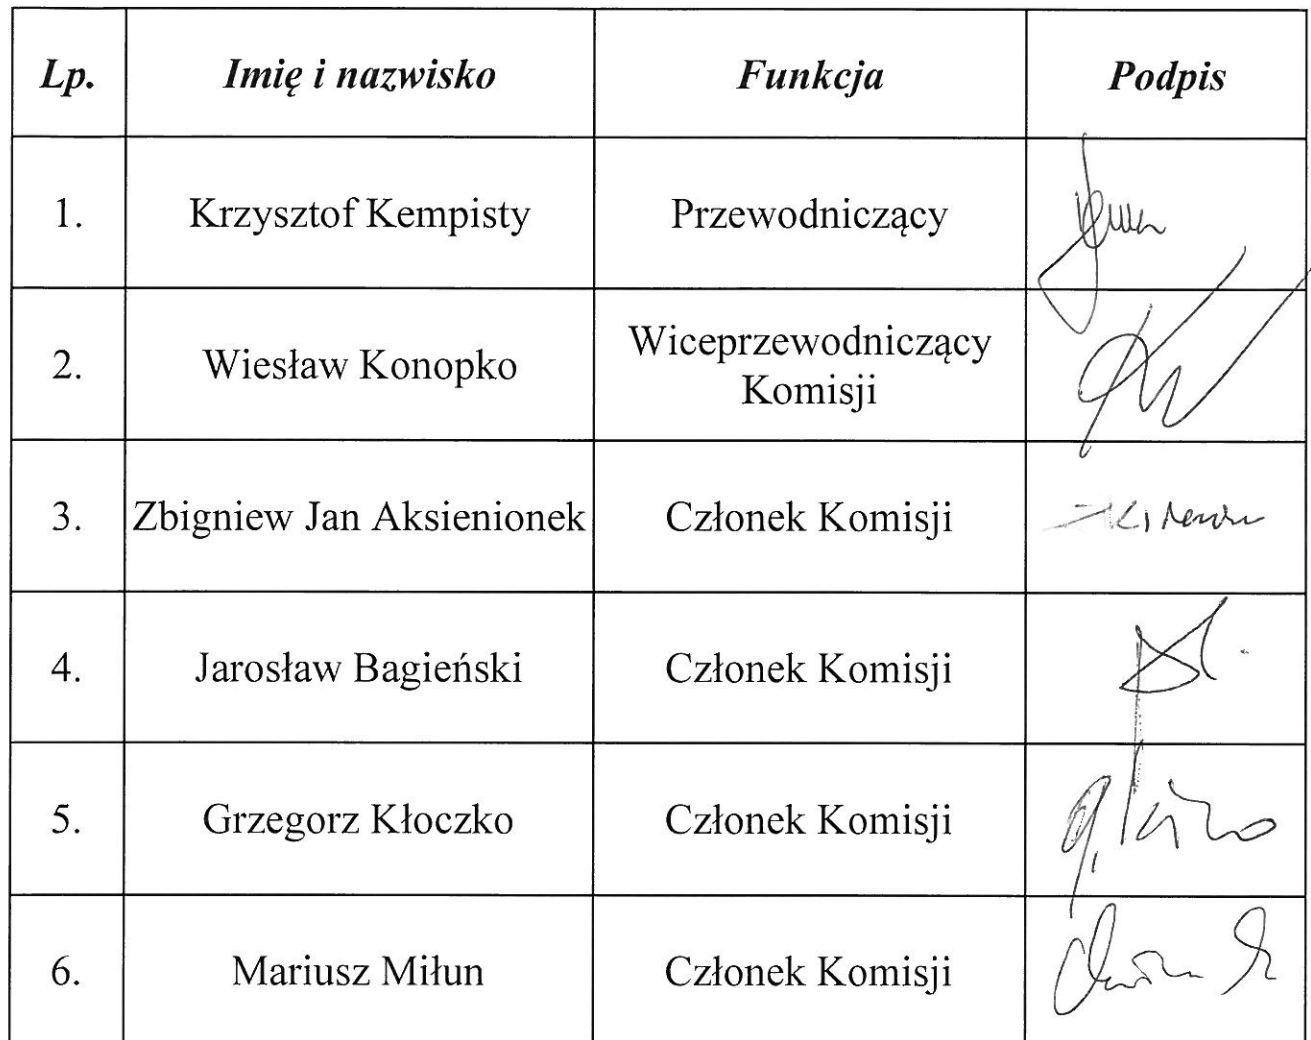 Lp. Imię i nazwisko Funkcja Podpis
1. Krzysztof Kempisty Przewodniczący
2. Wiesław Konopko Wiceprzewodniczący
Komisji
3. Zbigniew Jan Aksienionek Członek Komisji
4. Jarosław Bagieński Członek Komisji
5. Grzegorz Kłoczko Członek Komisji
6. Mariusz Miłun Członek Komisji